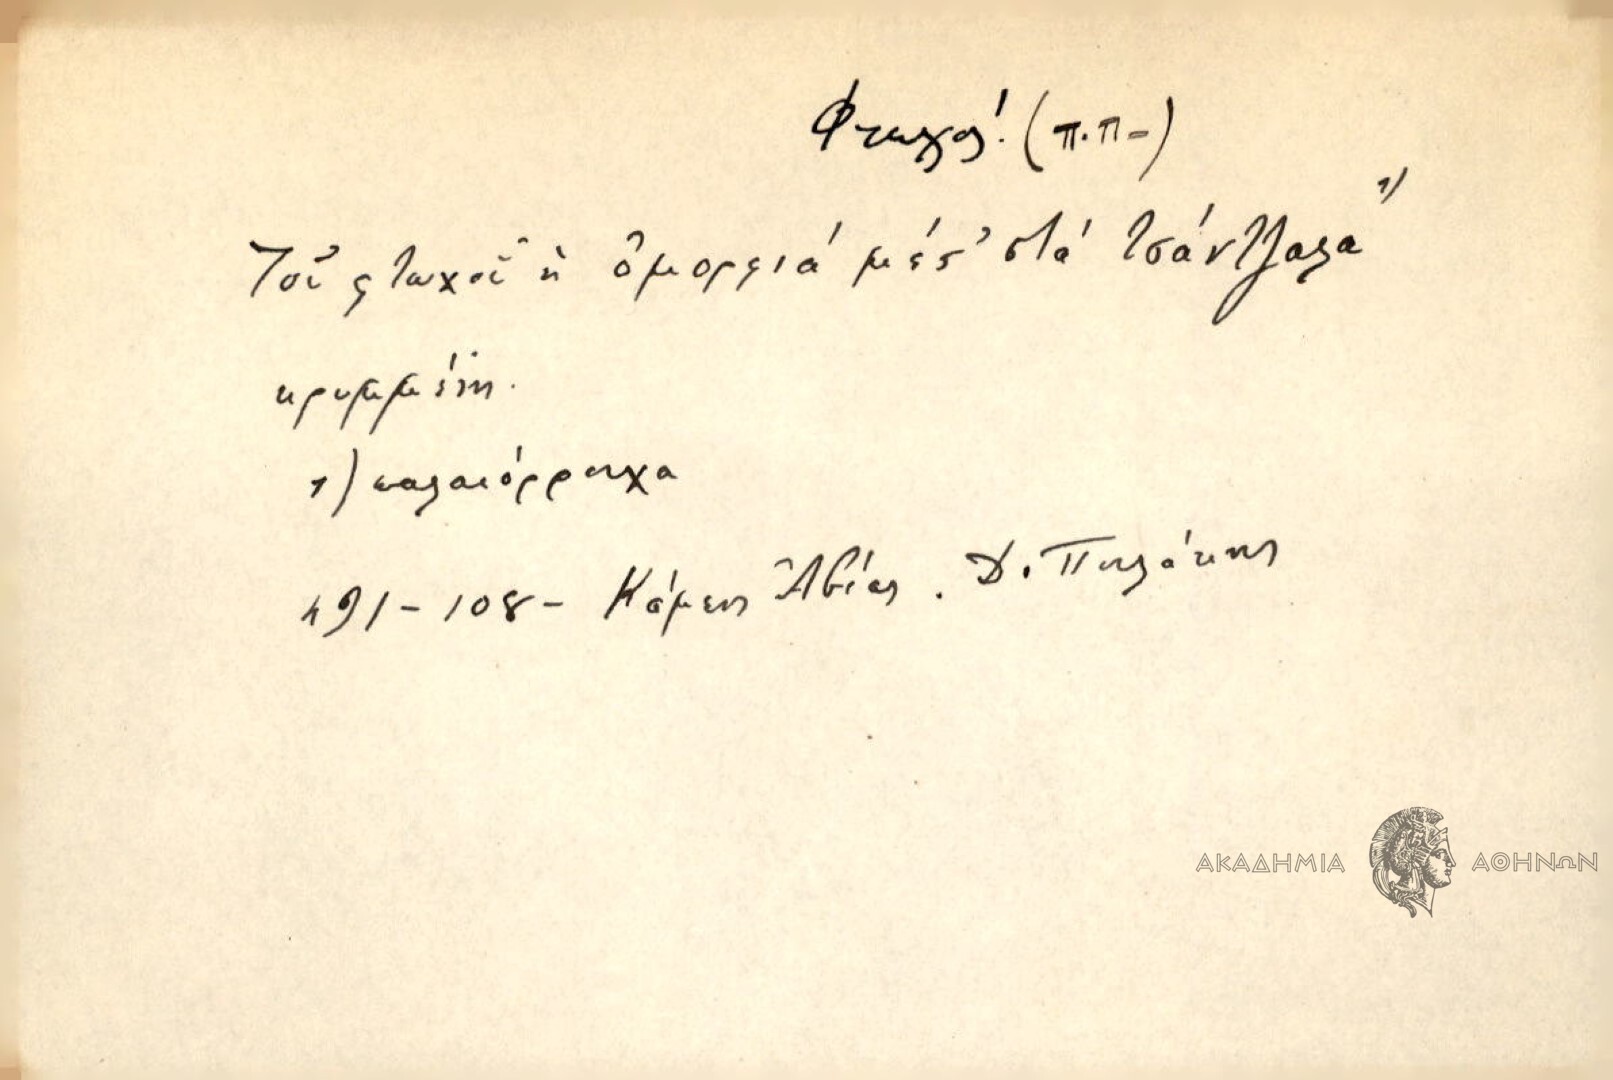 Φτωχός (π.π-)
Τοῦ φτωχοῦ ἡ ὀμορφιά μέσ' στά τσάντζαλα 1)
κρυμμένη.
1) παλαιόρρουχα
491-108- Κάμπου Ἀβίας. Δ. Πουλάκης
ΑΚΑΔΗΜΙΑ ΑΘΗΝΩΝ